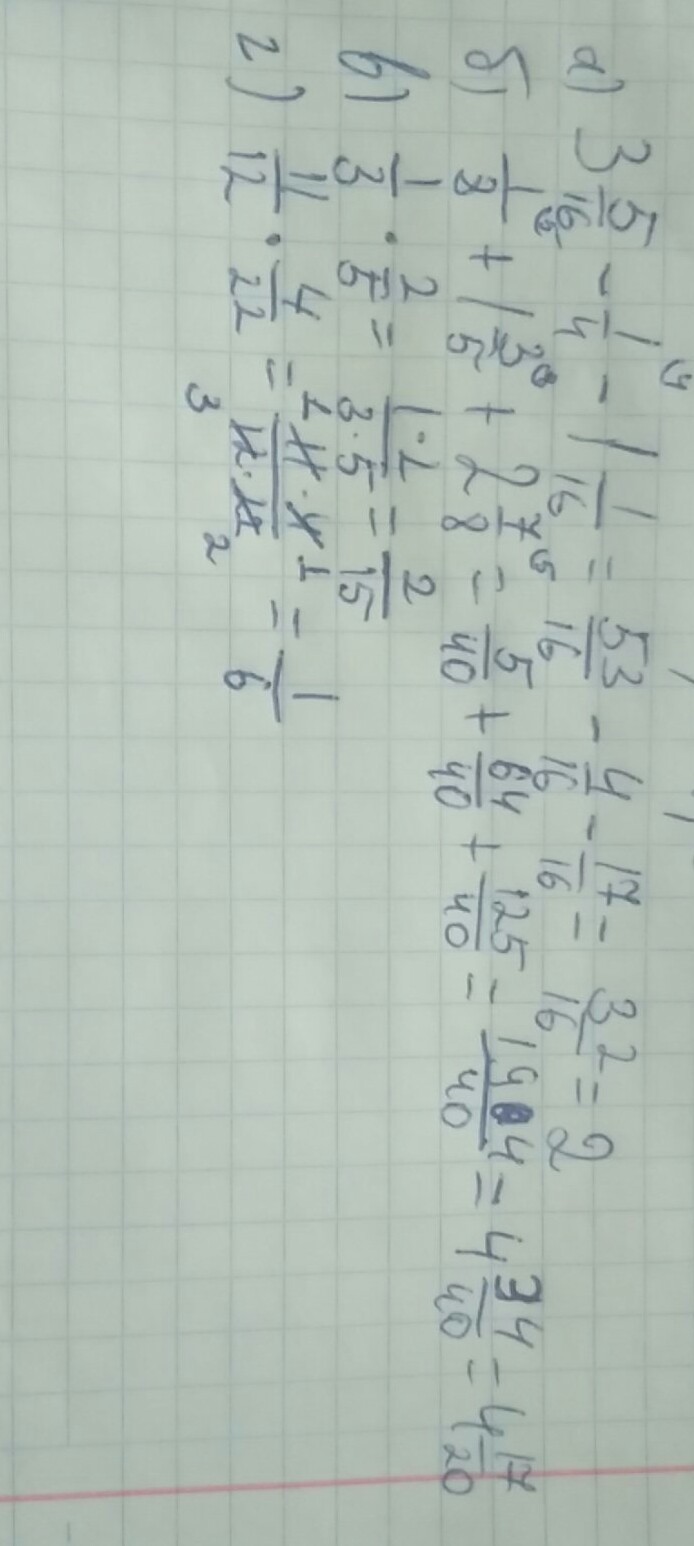 а) 3 5/16 - 1/4 - 1 1/16 = 53/16 - 4/16 - 17/16 = 32/16 = 2
б) 1/8 + 1 3/5 + 2 7/8 = 5/40 + 64/40 + 125/40 = 194/40 = 4 34/40 = 4 17/20
в) 1/3 · 2/5 = 1·2/3·5 = 2/15
г) 11/12 · 4/22 = 11·4/12·22 = 1/6